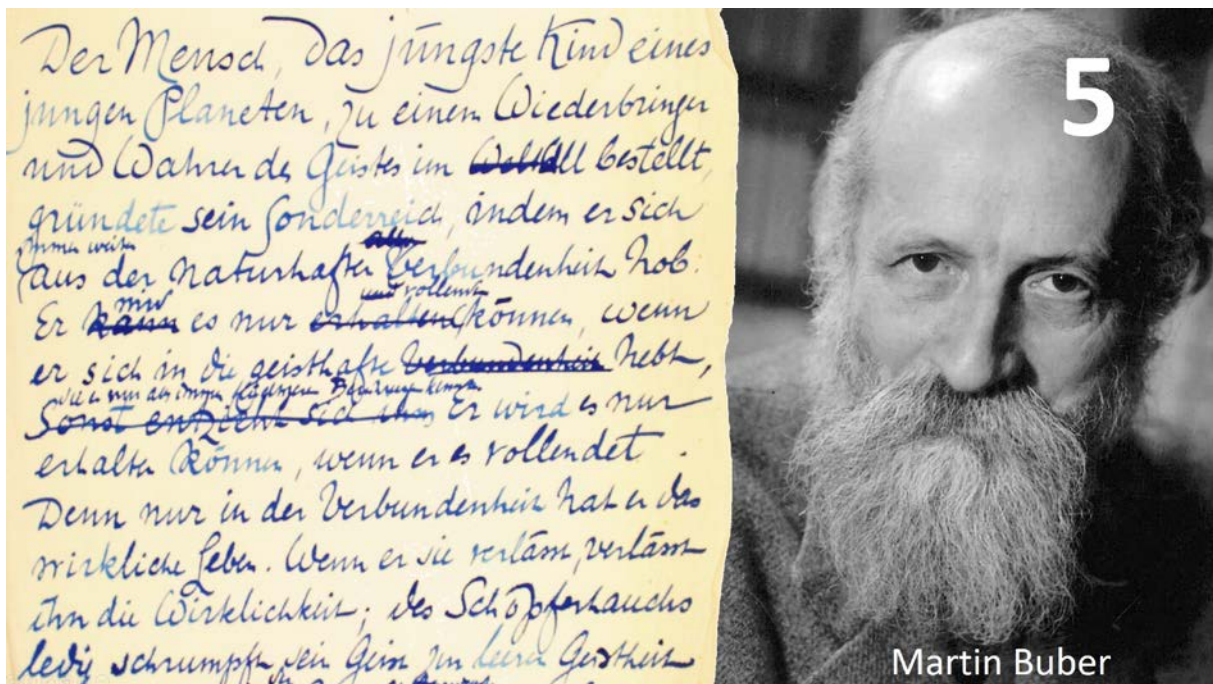 Der Mensch, das jüngste Kind eines
jungen Planeten, zu einem Wiederbringer
und Wahrer des Geistes im Weltall bestellt,
gründete sein Sonderreich, indem er sich
immer weiter
aus der naturhaften Verbundenheit hob.
und vollenden
Er kann es nur erhalten können, wenn
er sich in die geisthafte Verbundenheit hebt,
Sonst entzieht sich ihm Er wird es nur
erhalten können, wenn er es vollendet.
Denn nur in der Verbundenheit hat er das
wirkliche Leben. Wenn er sie verlässt, verlässt
ihn die Wirklichkeit; des Schöpferhauchs
ledig schrumpft sein Geist zur leeren Geistheit
5
Martin Buber